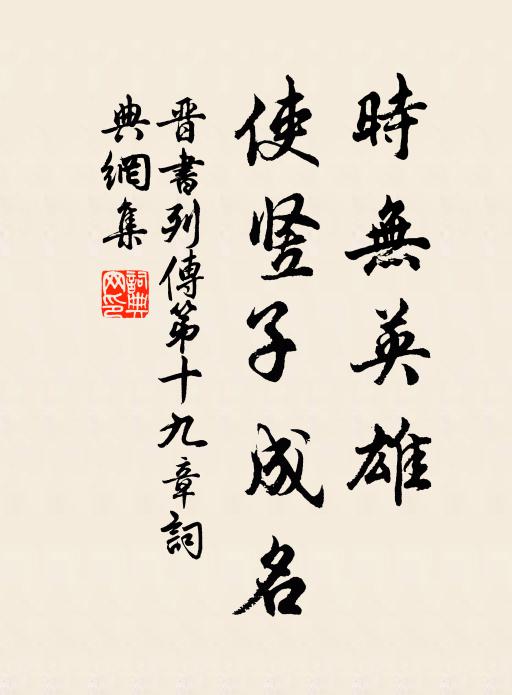 時無英雄
使豎子成名
晋書列傳第十九章詞
典網集
詞典网印